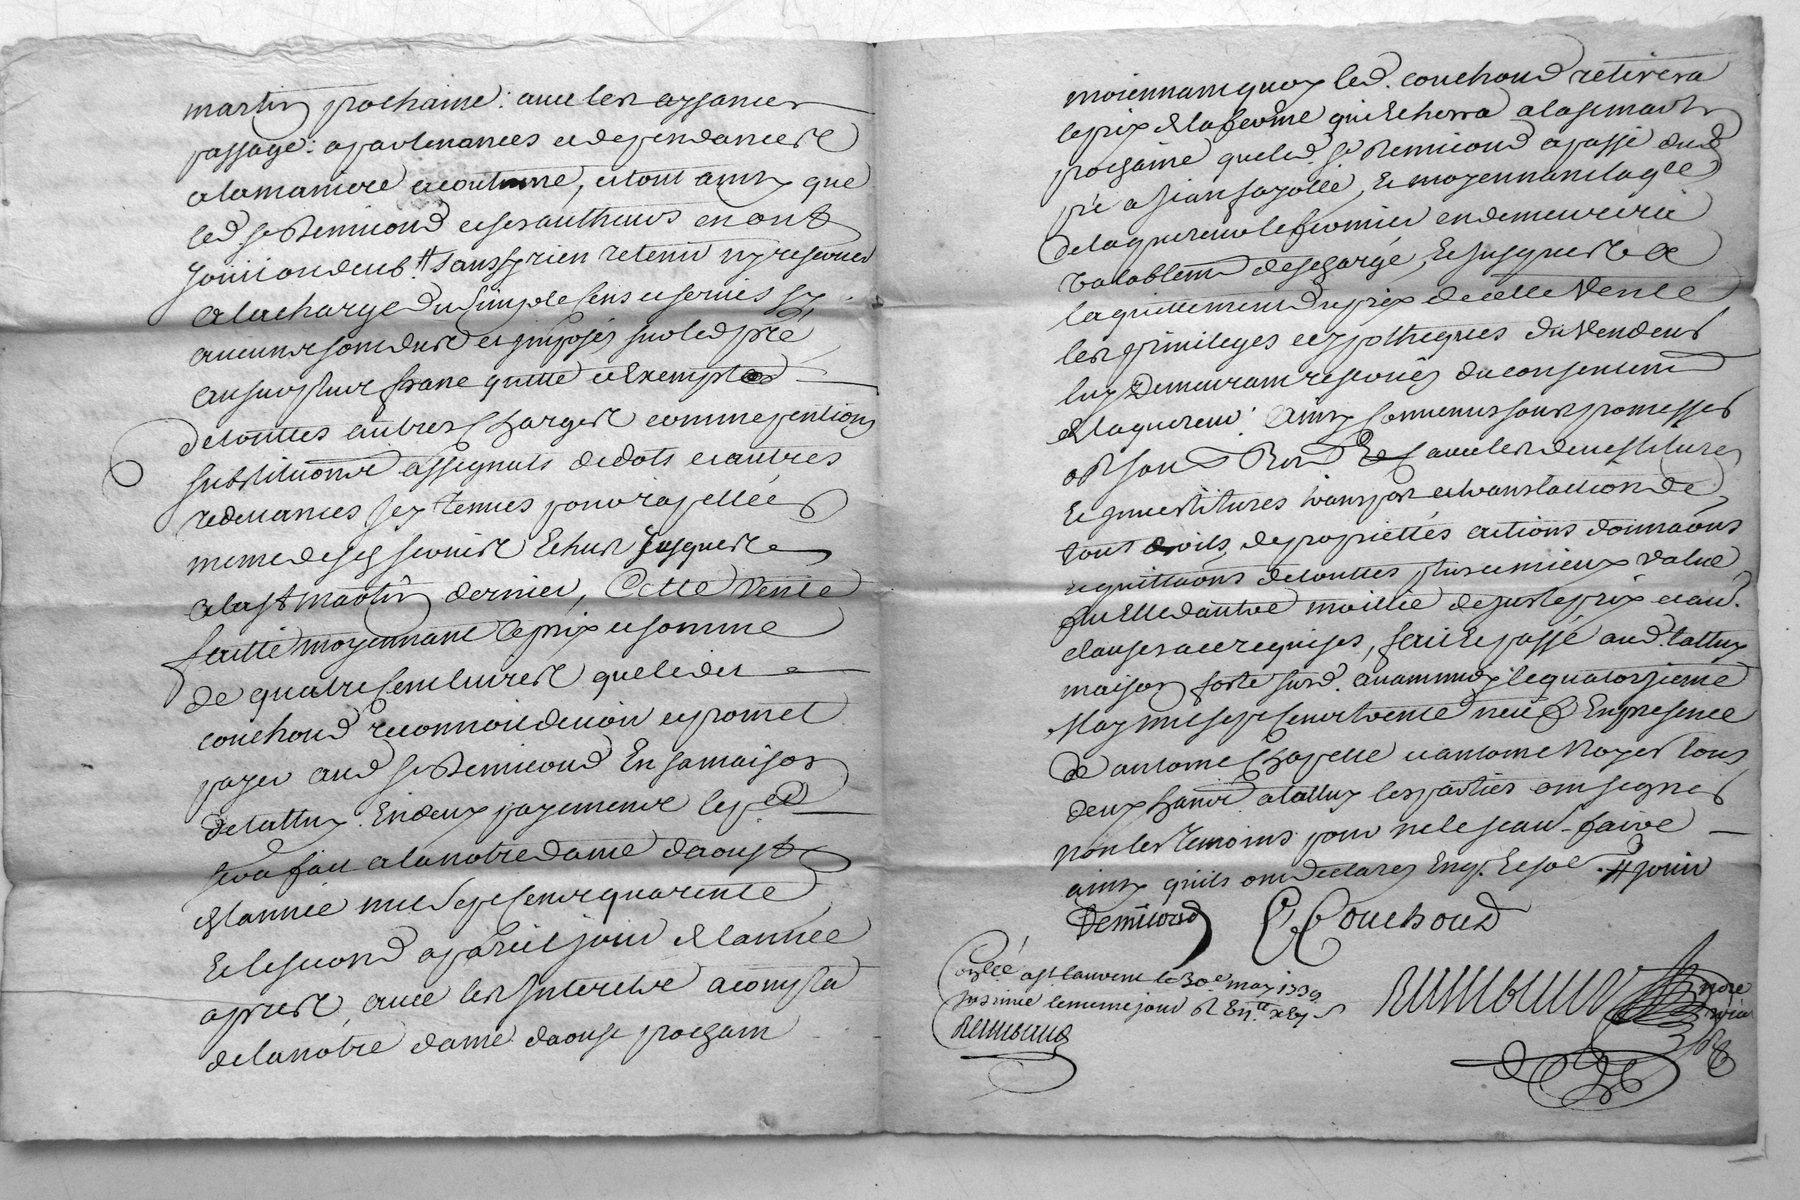 martin prochaine : avec les aysances
passage : apartenances et dependances
a la maniere acoutumé, et tout ainsy que
led sr Demicoud et ses autheurs en ont
joui ou deub # sans y rien retenir ny reserver
a la charge du simple sens et servis sy
aucuns sont dus et imposés sur led pré
au surplus franc quitte et exempt
de touttes autres charges comme pentions
substitutions assignats de dots et autres
redevances sy tenues pour rapellées
meme desd servis echus jusques
a la st martin dernier, Cette vente
faitte moyennant le prix et somme
de quatre cent livres que ledit
couchoud reconnoit devoir et promet
payer aud sr Demicoud en sa maison
de tallux en deux payements le per
sera fait a la notre dame d'aoust
de l'annee mil sept cent quarente
et le second a pareil jour de l'année
apres avec les interets a compter
de la notre dame d'aoust prochain
moiennant quoy led. couchoud retirera
le prix de la ferme qui echerra a la st martin
prochaine que led. sr Demicoud a passé dud
pré a jean fayolle, et moyennant lag
de laquereur le fermier en demeurera
valablemt deschargé, et jusques a
laquittement du prix de cette vente
les privileges et ypotheques du vendeur
luy demeurant reservés du consentemt
de laquereur. ainsy convenus sous promesses
obl soud Ron Et avec les devestitures
et investitures transport et translation de
tous droits de propriettés actions donnaôns
et quittaôns de touttes plus et mieux value
fut elle d'autre moitié de juste prix et au.
clauses a ce requises, fait et passé aud. tallux
maison forte sud. avant midy le quatorzieme
May mil sept cent trente neuf En presence
de antoine Chapelle et antoine Royer tous
deux hants a tallux les parties ont signé
non les temoins pour ne le scavoir faire
ainsy qu'ils ont declarés Enq. et som. # jouir
Demicoud C Couchoud
Conllé a st lauvent le 30e may 1739
insinué le meme jour